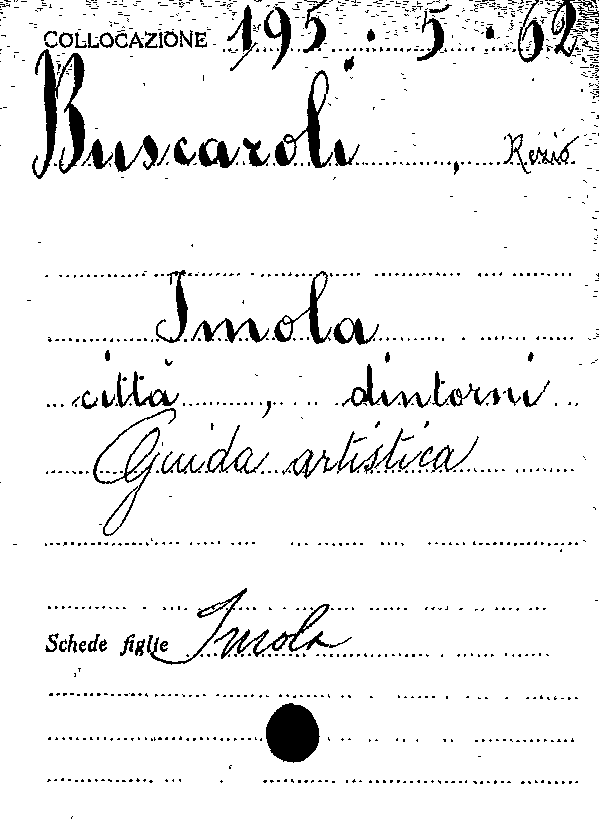 COLLOCAZIONE 195. 5. 62
Buscaroli, Rezio
Imola
città, dintorni
Guida artistica
Schede figlie Imola